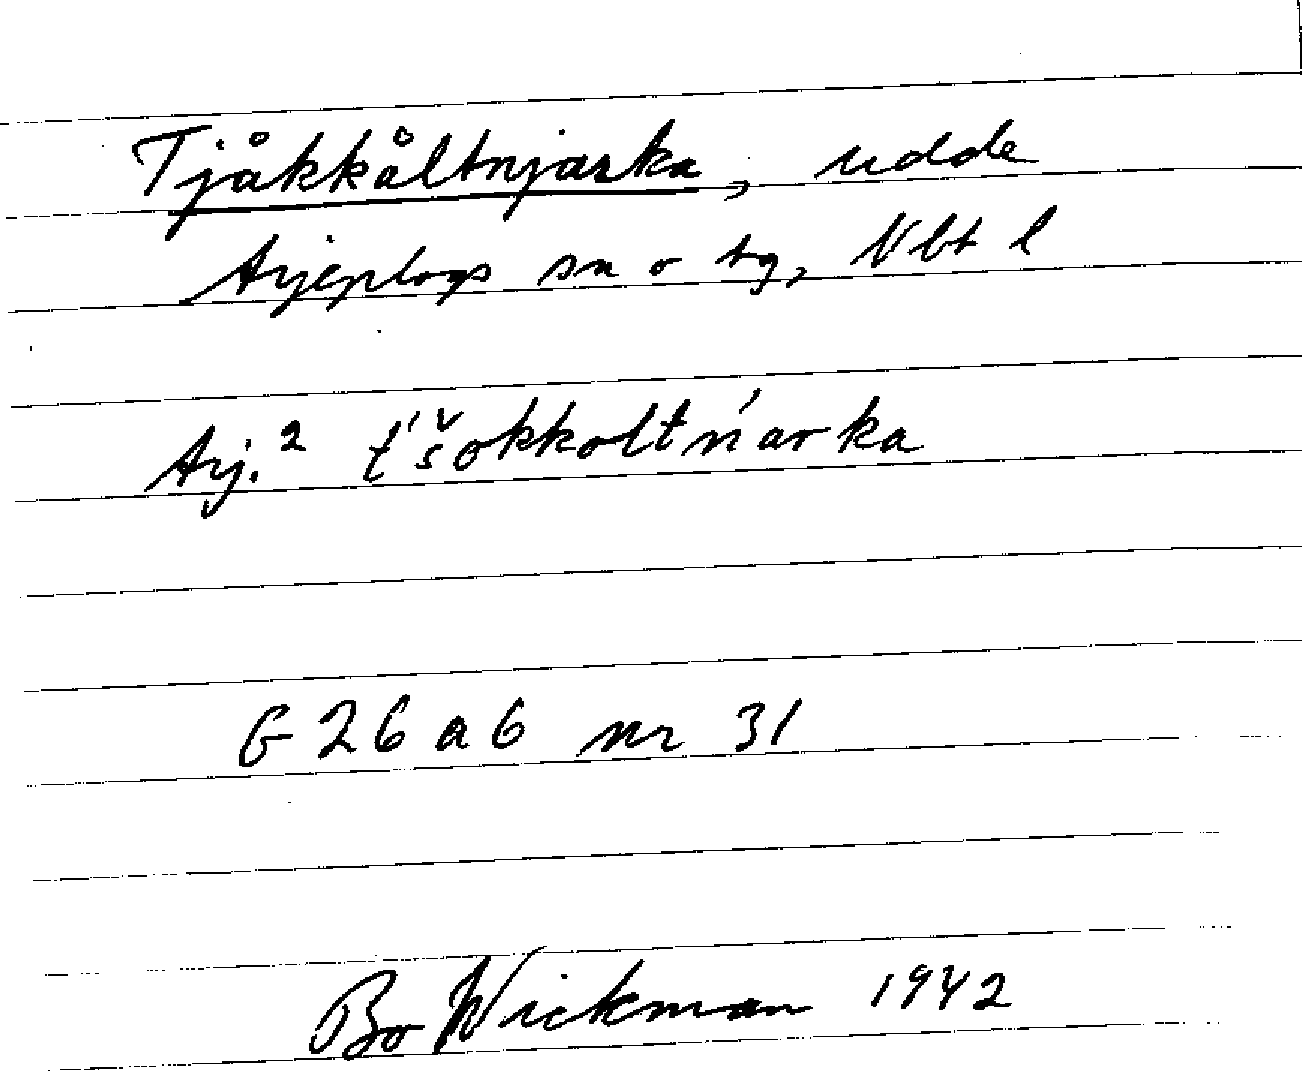 Tjåkkåltnjarka, udde
Arjeplogs sn o tg, Vbt l
Arj.² t́šokkoltńarka
G 26 a 6 nr 31
Bo Wickman 1942